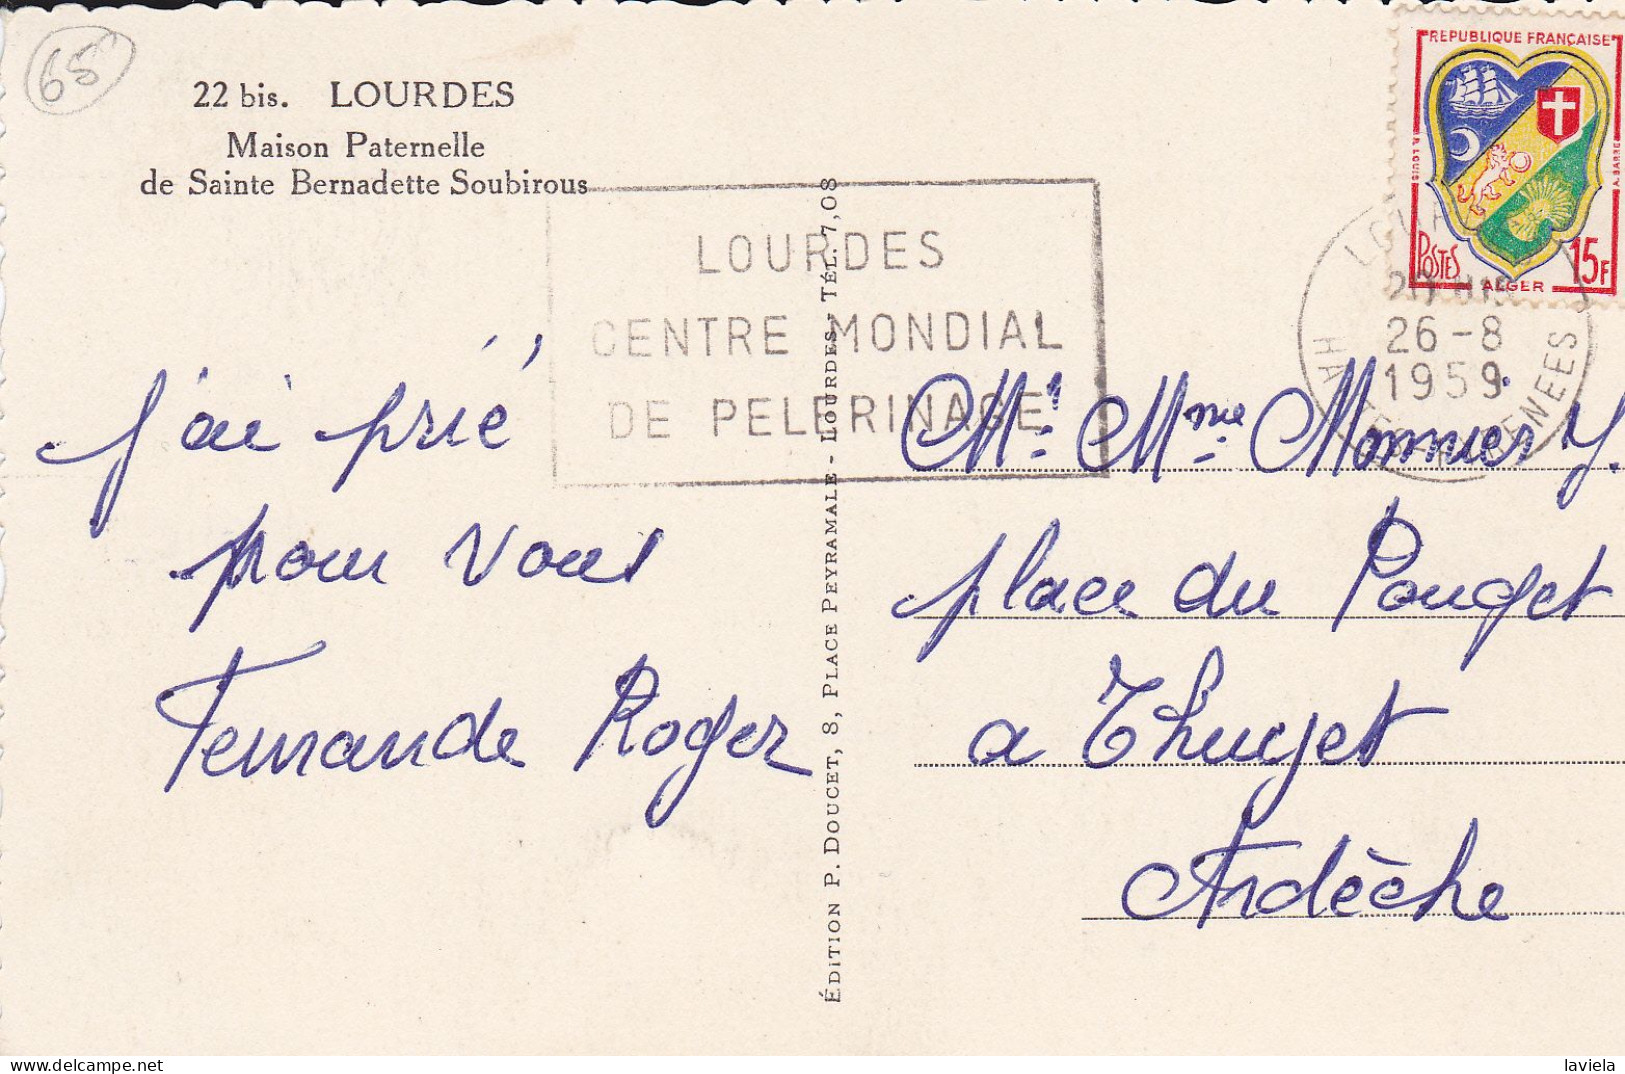 65
22 bis. LOURDES
Maison Paternelle
de Sainte Bernadette Soubirous
LOURDES
CENTRE MONDIAL
DE PELERINAGE
REPUBLIQUE FRANÇAISE
POSTES
15F
ALGER
A. BARRE
26-8
1959
j'ai prié
pour vous
Fernande Roger
ÉDITION P. DOUCET, 8, PLACE PEYRAMALE - LOURDES - TÉL. 7,08
Mr. Mme Monnier Y.
place du Pouget
a Thueyet
Ardèche
laviela